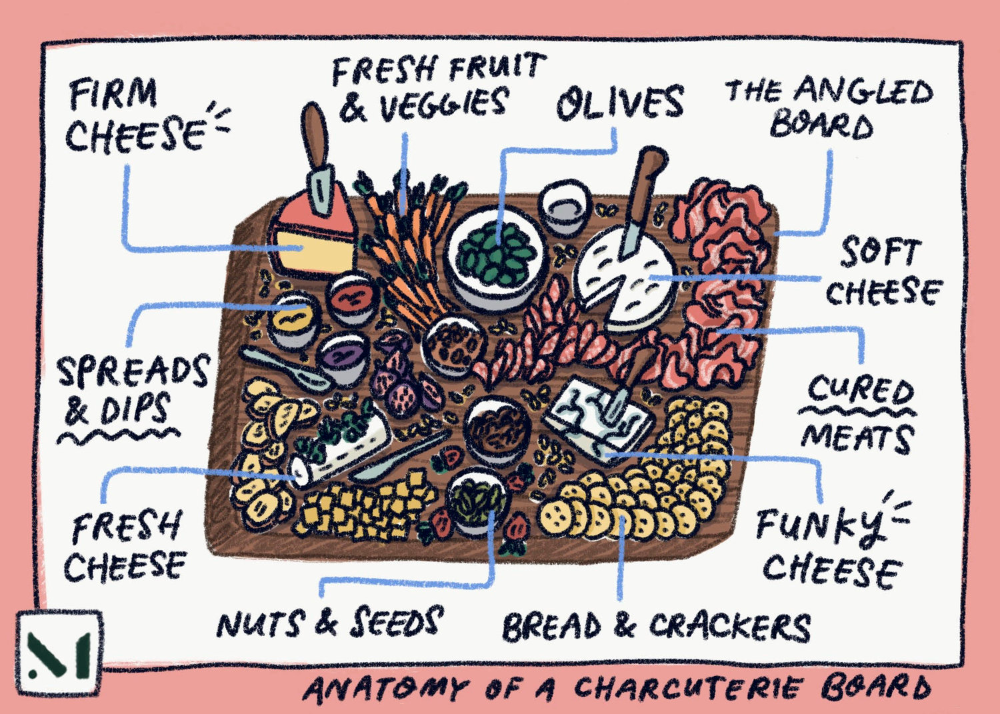 FIRM
CHEESE
FRESH FRUIT
& VEGGIES
OLIVES
THE ANGLED
BOARD
SOFT
CHEESE
SPREADS
& DIPS
CURED
MEATS
FRESH
CHEESE
FUNKY
CHEESE
NUTS & SEEDS
BREAD & CRACKERS
M
ANATOMY OF A CHARCUTERIE BOARD